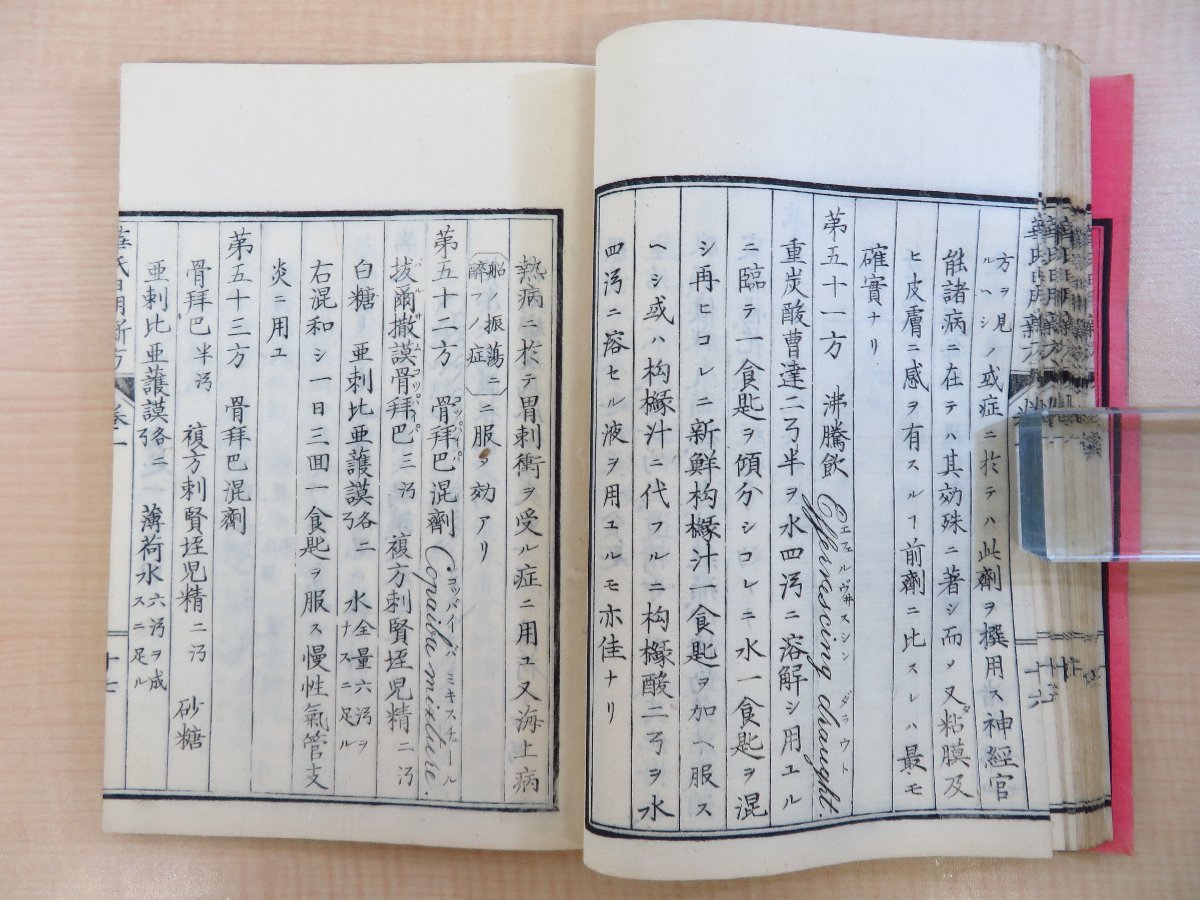 方ヲ見ルヘシノ或症ニ於テハ此劑ヲ撰用ス神經官
能諸病ニ在テハ其効殊ニ著シ而〆又粘膜及
ヒ皮膚ニ感ヲ有スルヿ前劑ニ比スレハ最モ
確實ナリ
第五十一方 沸騰飲 Effervascing draught. エフェルヴ井スシン ダラウト
重炭酸曹達二弓半ヲ水四沔ニ溶解シ用ユル
ニ臨テ一食匙ヲ傾分シコレニ水一食匙ヲ混
シ再ヒコレニ新鮮枸櫞汁一食匙ヲ加ヘ服ス
ヘシ或ハ枸櫞汁ニ代フルニ枸櫞酸二弓ヲ水
四沔ニ溶セル液ヲ用ユルモ亦佳ナリ
十六
熱病ニ於テ胃刺衝ヲ受ル症ニ用ユ又海上病
船ノ振蕩ニ醉フノ症ニ服〆効アリ
第五十二方 骨拜巴混劑 コッパイパ Copaiba mixture. コッパイバ ミキスチュール
拔爾撒謨骨拜巴三沔 複方刺賢垤児精二沔
白糖 亜刺比亜護謨各二弓 水全量六沔ヲナスニ足ル
右混和シ一日三回一食匙ヲ服ス慢性氣管支
炎ニ用ユ
第五十三方 骨拜巴混劑
骨拜巴半沔 複方刺賢垤児精二沔 砂糖
亜刺比亜護謨各二弓 薄荷水六沔ヲ成スニ足ル
華氏日用新方 卷一 十七